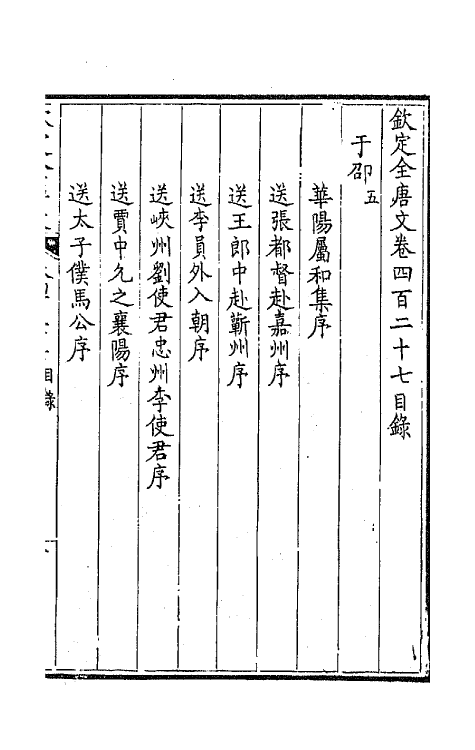 欽定全唐文卷四百二十七目錄
于邵五
華陽屬和集序
送張都督赴嘉州序
送王郎中赴蘄州序
送李員外入朝序
送峽州劉使君忠州李使君序
送賈中允之襄陽序
送太子僕馬公序
目錄